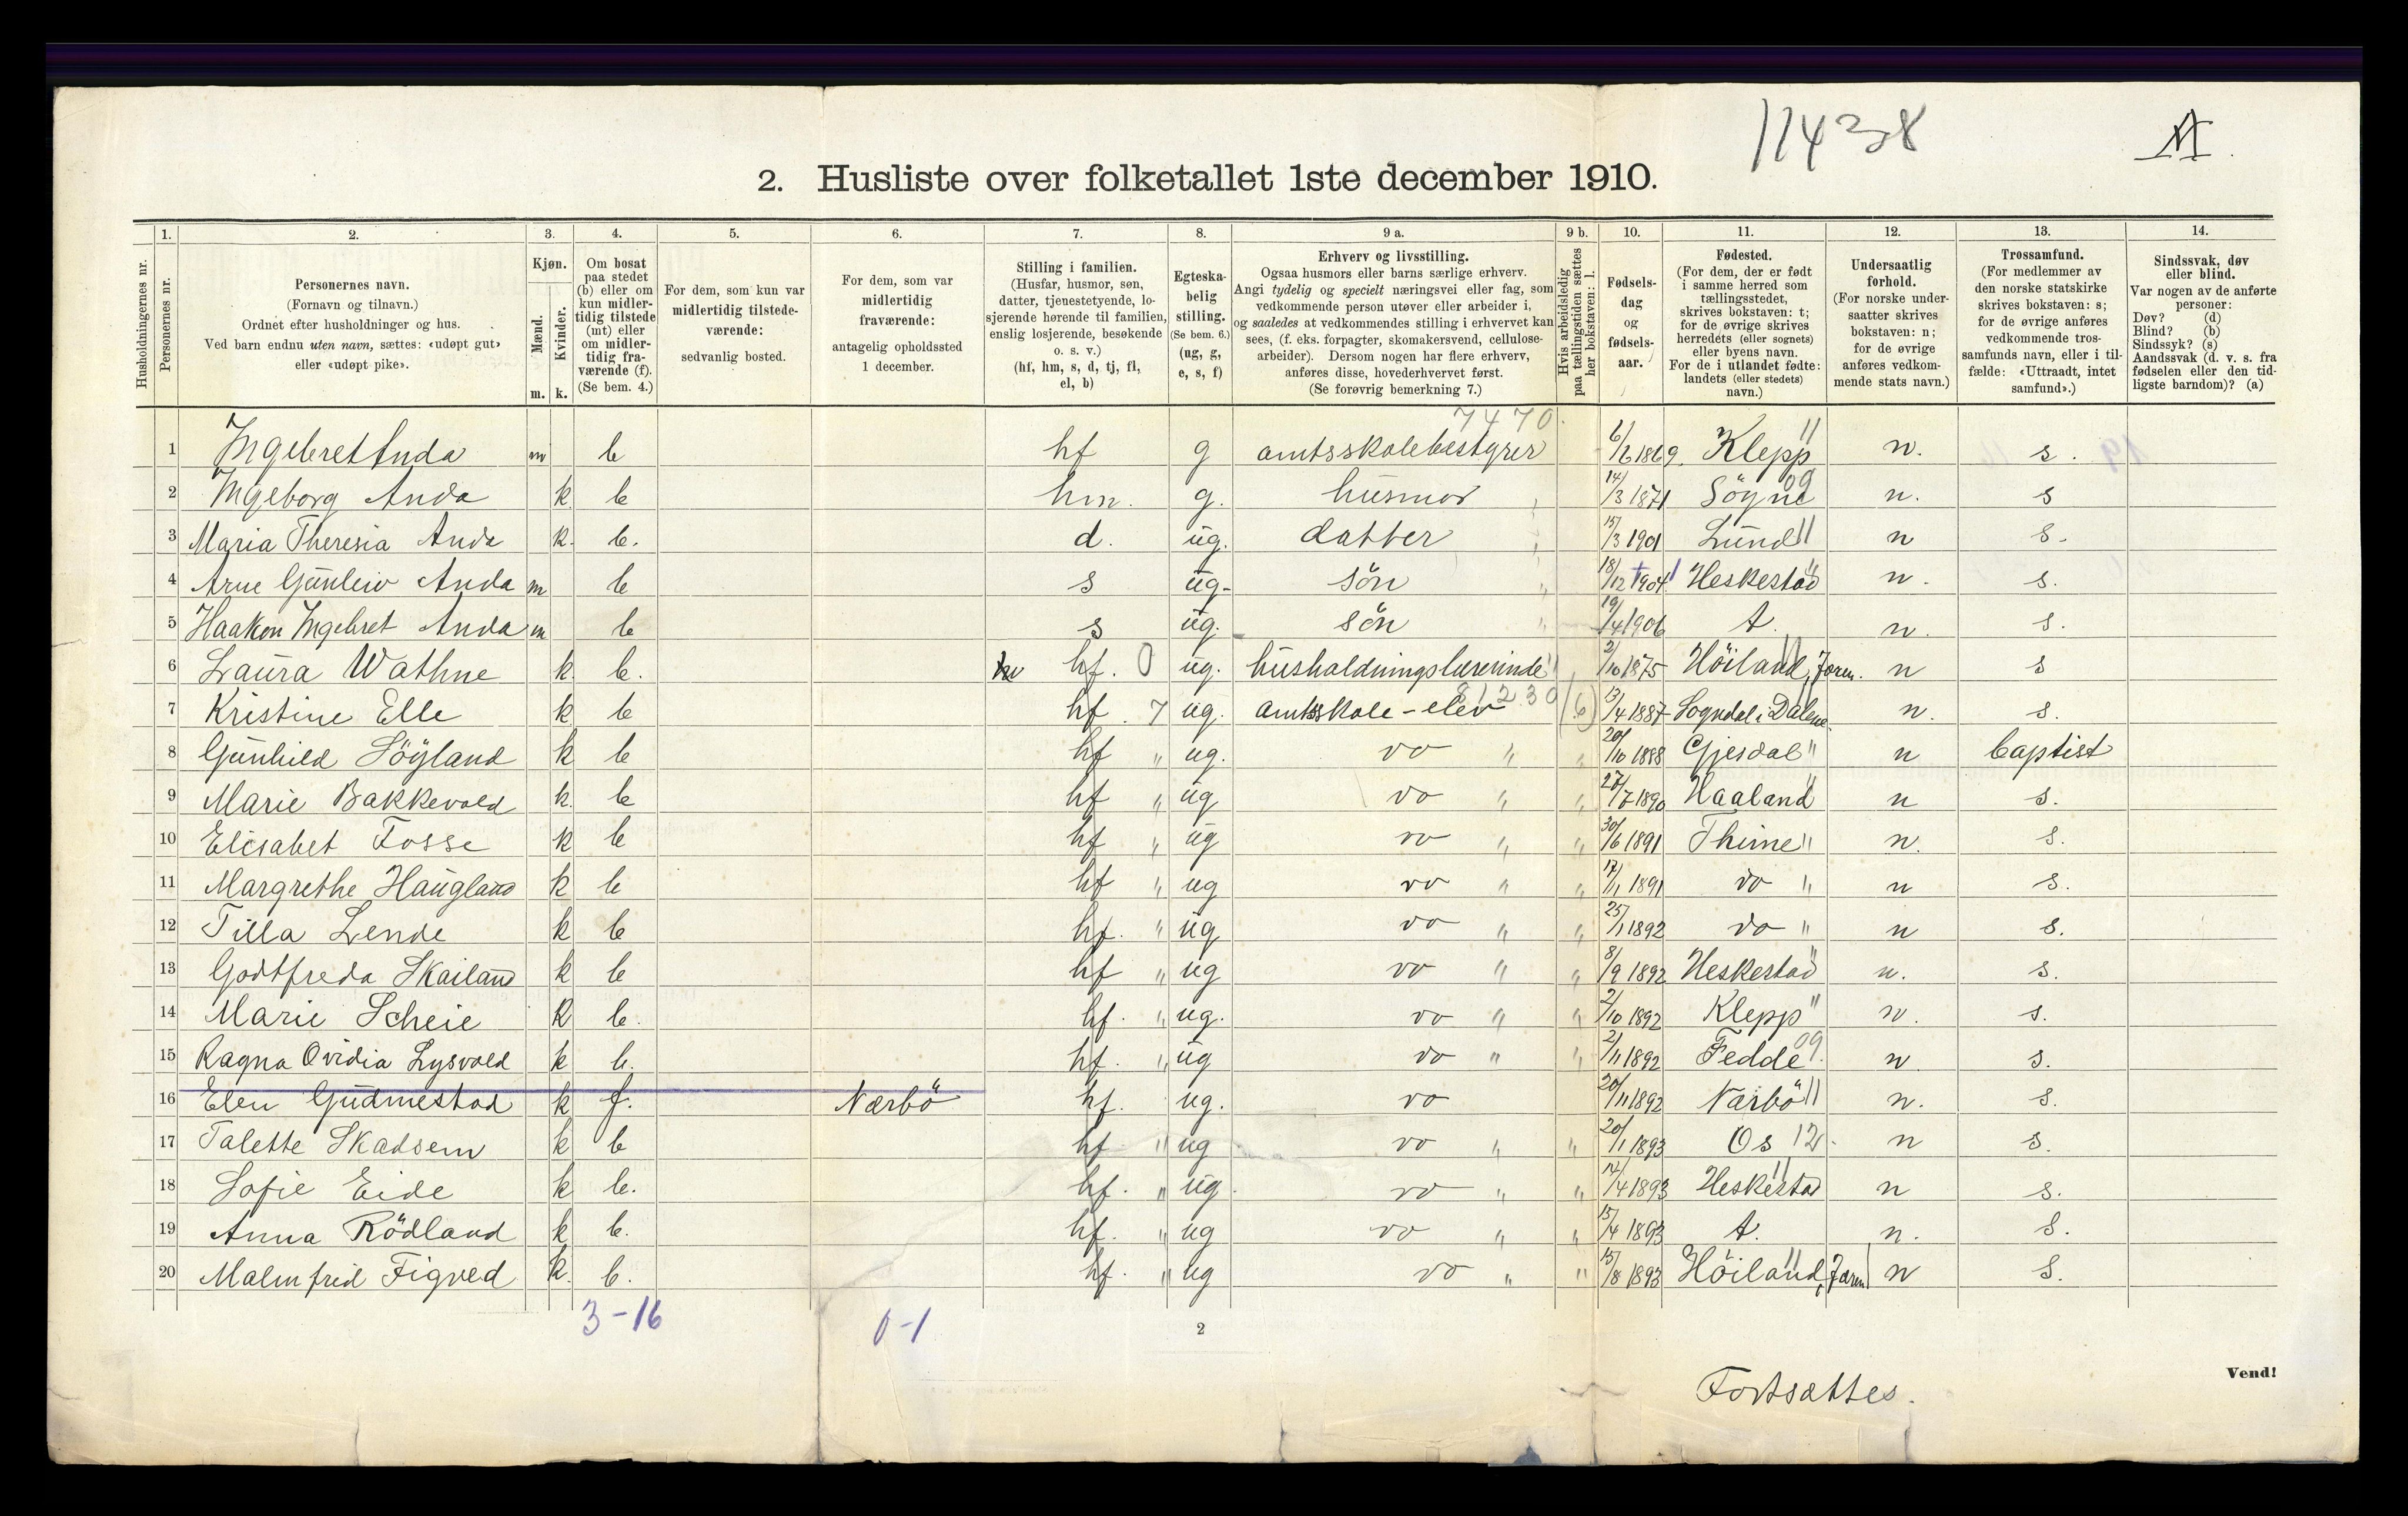 11438
2. Husliste over folketallet 1ste december 1910.
Husholdningernes nr.
1. Personernes nr.
2. Personernes navn.
(Fornavn og tilnavn.)
Ordnet efter husholdninger og hus.
Ved barn endnu uten navn, sættes: «udøpt gut»
eller «udøpt pike».
3. Kjøn.
Mænd. m.
Kvinder. k.
4. Om bosat
paa stedet
(b) eller om
kun midler-
tidig tilstede
(mt) eller
om midler-
tidig fra-
værende (f).
(Se bem. 4.)
5. For dem, som kun var
midlertidig tilstede-
værende:
sedvanlig bosted.
6. For dem, som var
midlertidig
fraværende:
antagelig opholdssted
1 december.
7. Stilling i familien.
(Husfar, husmor, søn,
datter, tjenestetyende, lo-
sjerende hørende til familien,
enslig losjerende, besøkende
o. s. v.)
(hf, hm, s, d, tj, fl,
el, b)
8. Egteska-
belig
stilling.
(Se bem. 6.)
(ug, g,
e, s, f)
9 a. Erhverv og livsstilling.
Ogsaa husmors eller barns særlige erhverv.
Angi tydelig og specielt næringsvei eller fag, som
vedkommende person utøver eller arbeider i,
og saaledes at vedkommendes stilling i erhvervet kan
sees, (f. eks. forpagter, skomakersvend, cellulose-
arbeider). Dersom nogen har flere erhverv,
anføres disse, hovederhvervet først.
(Se forøvrig bemerkning 7.)
9 b. Hvis arbeidsledig
paa tællingstiden sættes
her bokstaven: l.
10. Fødsels-
dag
og
fødsels-
aar.
11. Fødested.
(For dem, der er født
i samme herred som
tællingsstedet,
skrives bokstaven: t;
for de øvrige skrives
herredets (eller sognets)
eller byens navn.
For de i utlandet fødte:
landets (eller stedets)
navn.)
12. Undersaatlig
forhold.
(For norske under-
saatter skrives
bokstaven: n;
for de øvrige
anføres vedkom-
mende stats navn.)
13. Trossamfund.
(For medlemmer av
den norske statskirke
skrives bokstaven: s;
for de øvrige anføres
vedkommende tros-
samfunds navn, eller i til-
fælde: «Uttraadt, intet
samfund».)
14. Sindssvak, døv
eller blind.
Var nogen av de anførte
personer:
Døv? (d)
Blind? (b)
Sindssyk? (s)
Aandssvak (d. v. s. fra
fødselen eller den tid-
ligste barndom)? (a)
7470
1 Ingebret Anda m b hf g amtsskolebestyrer 6/6 1869. Klepp 11 n. s.
2 Ingeborg Anda k b hm. g. husmor 14/3 1871 Sögne 09 n. s
3 Maria Theresia Anda k. b. d. ug. datter 15/3 1901 Lund 11 n s.
4 Arne Gunleiv Anda m b s ug- sön 18/12 1904 Heskestad 11 n. s.
5 Haakon Ingebret Anda m b s ug. sön 19/4 1906 t. n. s.
6 Laura Wathne k. b. hf. 0 ug. husholdningslærerinde 2/10 1875 Höiland, Jæren. n s
7 Kristine Elle k b hf. 7 ug. amtsskole-elev 81230 (6) 13/4 1887 Sogndal i Dalene n. s.
8 Gunhild Söyland k b hf " ug. do " " 20/10 1888 Gjesdal " n baptist
9 Marie Bakkevold k. b hf " ug do " " 27/7 1890 Haaland " n s.
10 Elisabet Fosse k b hf " ug do " " 30/6 1891 Thime " n. s.
11 Margrethe Haugland k b hf " ug do " " 17/1 1891 do " n s.
12 Tilla Lende k b hf. " ug do " " 25/1 1892 do " n s.
13 Godtfreda Skailand k b hf " ug do " " 8/9 1892 Heskestad " n. s.
14 Marie Scheie k b. hf. " ug. do " " 2/10 1892 Klepp " n. s.
15 Ragna Ovidia Lysvold k b. hf. " ug do " " 2/11 1892 Fedde 09. n s.
16 Elen Gudmestad k f. Nærbö hf. ug. do 20/11 1892 Nærbö 11 n. s.
17 Talette Skadsem k b hf " ug do " " 20/1 1893 Os 12. n s.
18 Sofie Eide k b. hf. " ug. do " " 14/4 1893 Heskestad 11 n s.
19 Anna Rödland k b. hf. " ug do " " 15/4 1893 t. n. s.
20 Malmfrid Figved k. b. hf. " ug do " " 15/8 1893 Höiland, Jæren n s.
3-16 0-1
2
Vend!
Fortsættes.